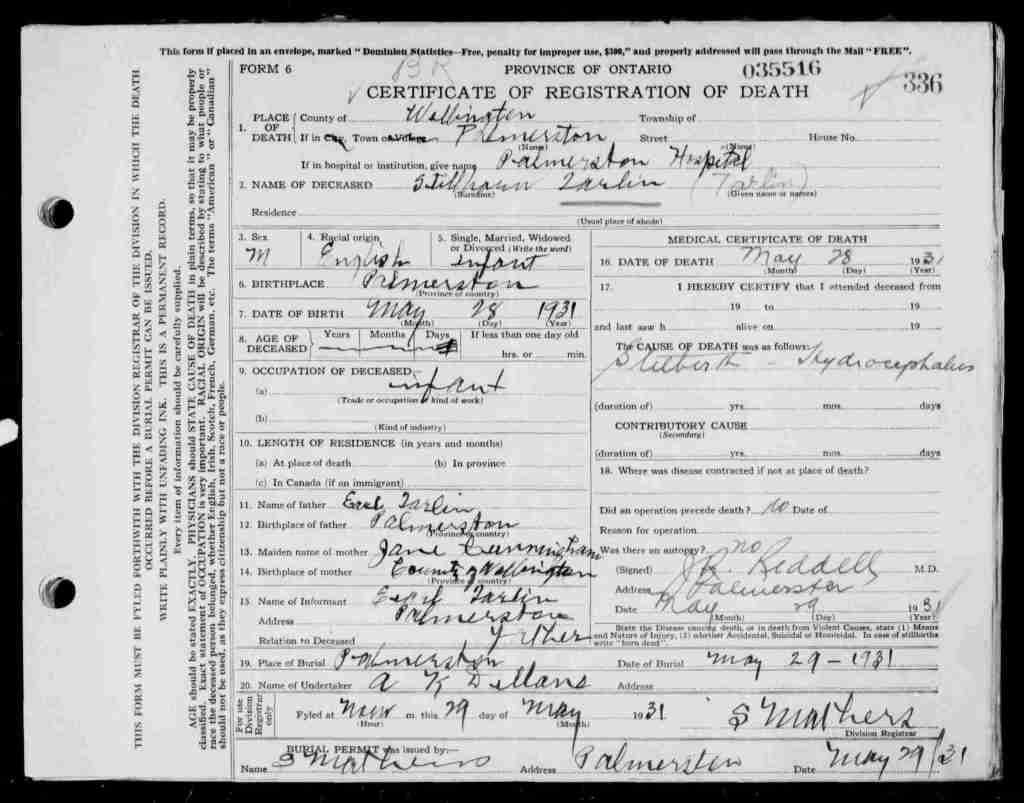 This form if placed in an envelope, marked "Dominion Statistics—Free, penalty for improper use, $300," and properly addressed will pass through the Mail "FREE".
FORM 6 BR PROVINCE OF ONTARIO 035516 336
CERTIFICATE OF REGISTRATION OF DEATH
1. PLACE OF DEATH County of Wellington Township of
If in City, Town or Village Palmerston (Name) Street (Name) House No.
If in hospital or institution, give name Palmerston Hospital
2. NAME OF DECEASED Stillborn Tarlin (Tarlin)
(Surname) (Given name or names)
Residence
(Usual place of abode)
3. Sex M 4. Racial origin English 5. Single, Married, Widowed or Divorced (Write the word) infant
6. BIRTHPLACE Palmerston
(Province or country)
7. DATE OF BIRTH May 28 1931
(Month) (Day) (Year)
8. AGE OF DECEASED Years Months Days If less than one day old
hrs. or min.
9. OCCUPATION OF DECEASED
(a) infant
(Trade or occupation or kind of work)
(b)
(Kind of industry)
10. LENGTH OF RESIDENCE (in years and months)
(a) At place of death (b) In province
(c) In Canada (if an immigrant)
11. Name of father Tarlin
12. Birthplace of father Palmerston
(Province or country)
13. Maiden name of mother Jane Cunningham
14. Birthplace of mother County of Wellington
(Province or country)
15. Name of Informant Tarlin
Address Palmerston
Relation to Deceased Father
MEDICAL CERTIFICATE OF DEATH
16. DATE OF DEATH May 28 1931
(Month) (Day) (Year)
17. I HEREBY CERTIFY that I attended deceased from
19 to 19
and last saw h alive on 19
The CAUSE OF DEATH was as follows:
Stillbirth - Hydrocephalus
(duration of) yrs. mos. days
CONTRIBUTORY CAUSE
(Secondary)
(duration of) yrs. mos. days
18. Where was disease contracted if not at place of death?
Did an operation precede death? no Date of
Reason for operation
Was there an autopsy? no
(Signed) Reddell M.D.
Address Palmerston
Date May 29 1931
(Month) (Day) (Year)
State the Disease causing death, or in death from Violent Causes, state (1) Means
and Nature of Injury, (2) whether Accidental, Suicidal or Homicidal. In case of stillbirths
write "born dead".
19. Place of Burial Palmerston Date of Burial May 29 - 1931
20. Name of Undertaker A K Address
For use Division Registrar only
Fyled at Noon m. this 29 day of May 1931 S Mathers
(Hour) (Month) Division Registrar
BURIAL PERMIT was issued by:—
Name S Mathers Address Palmerston Date May 29/31
THIS FORM MUST BE FYLED FORTHWITH WITH THE DIVISION REGISTRAR OF THE DIVISION IN WHICH THE DEATH
OCCURRED BEFORE A BURIAL PERMIT CAN BE ISSUED.
WRITE PLAINLY WITH UNFADING INK. THIS IS A PERMANENT RECORD.
Every item of information should be carefully supplied.
AGE should be stated EXACTLY. PHYSICIANS should STATE CAUSE OF DEATH in plain terms, so that it may be properly
classified. Exact statement of OCCUPATION is very important. RACIAL ORIGIN will be described by stating to what people or
race the deceased person belonged, whether English, Irish, Scotch, French, German, etc. The terms "American" or "Canadian"
should not be used, as they express citizenship but not a race or people.